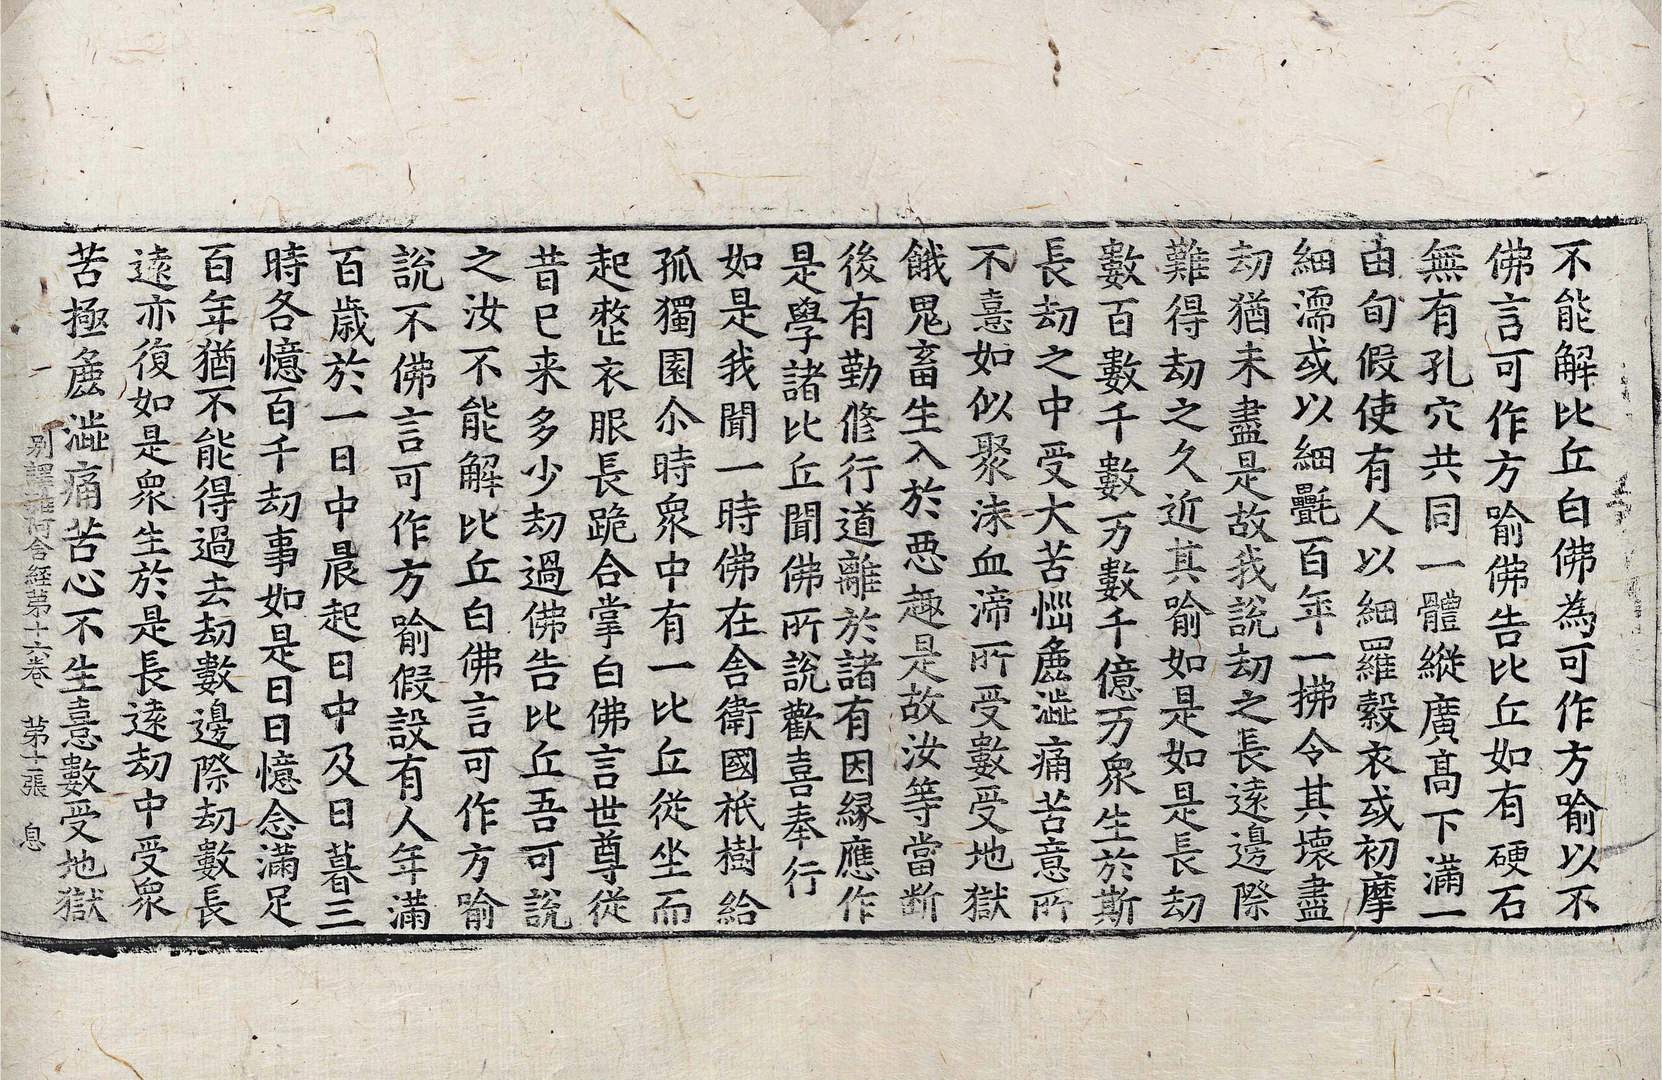 不能解比丘白佛為可作方喻以不
佛言可作方喻佛告比丘如有硬石
無有孔穴共同一體縱廣高下滿一
由旬假使有人以細羅縠衣或初摩
細濡或以細㲲百年一拂令其壞盡
劫猶未盡是故我說劫之長遠邊際
難得劫之久近其喻如是如是長劫
數百數千數万數千億万衆生於斯
長劫之中受大苦惱麁澁痛苦意所
不憙如似聚沫血渧所受數受地獄
餓鬼畜生入於惡趣是故汝等當斷
後有勤修行道離於諸有因緣應作
是學諸比丘聞佛所說歡喜奉行
如是我聞一時佛在舍衛國祇樹給
孤獨園尒時衆中有一比丘從坐而
起整衣服長跪合掌白佛言世尊從
昔已来多少劫過佛告比丘吾可說
之汝不能解比丘白佛言可作方喻
說不佛言可作方喻假設有人年滿
百歲於一日中晨起日中及日暮三
時各憶百千劫事如是日日憶念滿足
百年猶不能得過去劫數邊際劫數長
遠亦復如是衆生於是長遠劫中受衆
苦極麁澁痛苦心不生憙數受地獄
別譯雜阿含経第十六卷 第十張 息